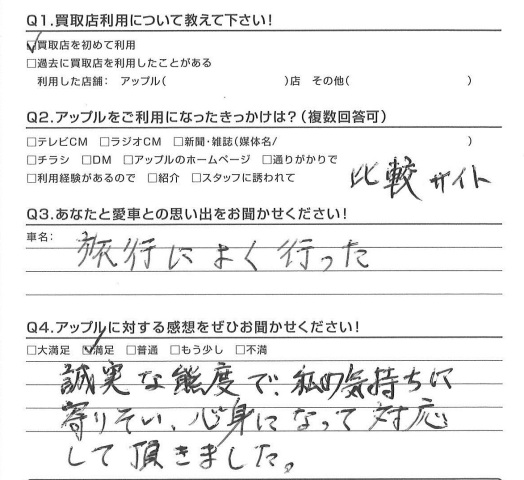 Q1.買取店利用について教えて下さい!
☑買取店を初めて利用
□過去に買取店を利用したことがある
利用した店舗： アップル( )店 その他( )
Q2.アップルをご利用になったきっかけは?(複数回答可)
□テレビCM □ラジオCM □新聞・雑誌(媒体名/ )
□チラシ □DM □アップルのホームページ □通りがかりで
□利用経験があるので □紹介 □スタッフに誘われて
比較サイト
Q3.あなたと愛車との思い出をお聞かせください!
車名：
旅行によく行った
Q4.アップルに対する感想をぜひお聞かせください!
□大満足 ☑満足 □普通 □もう少し □不満
誠実な態度で、私の気持ちに
寄りそい、心身になって対応
して頂きました。